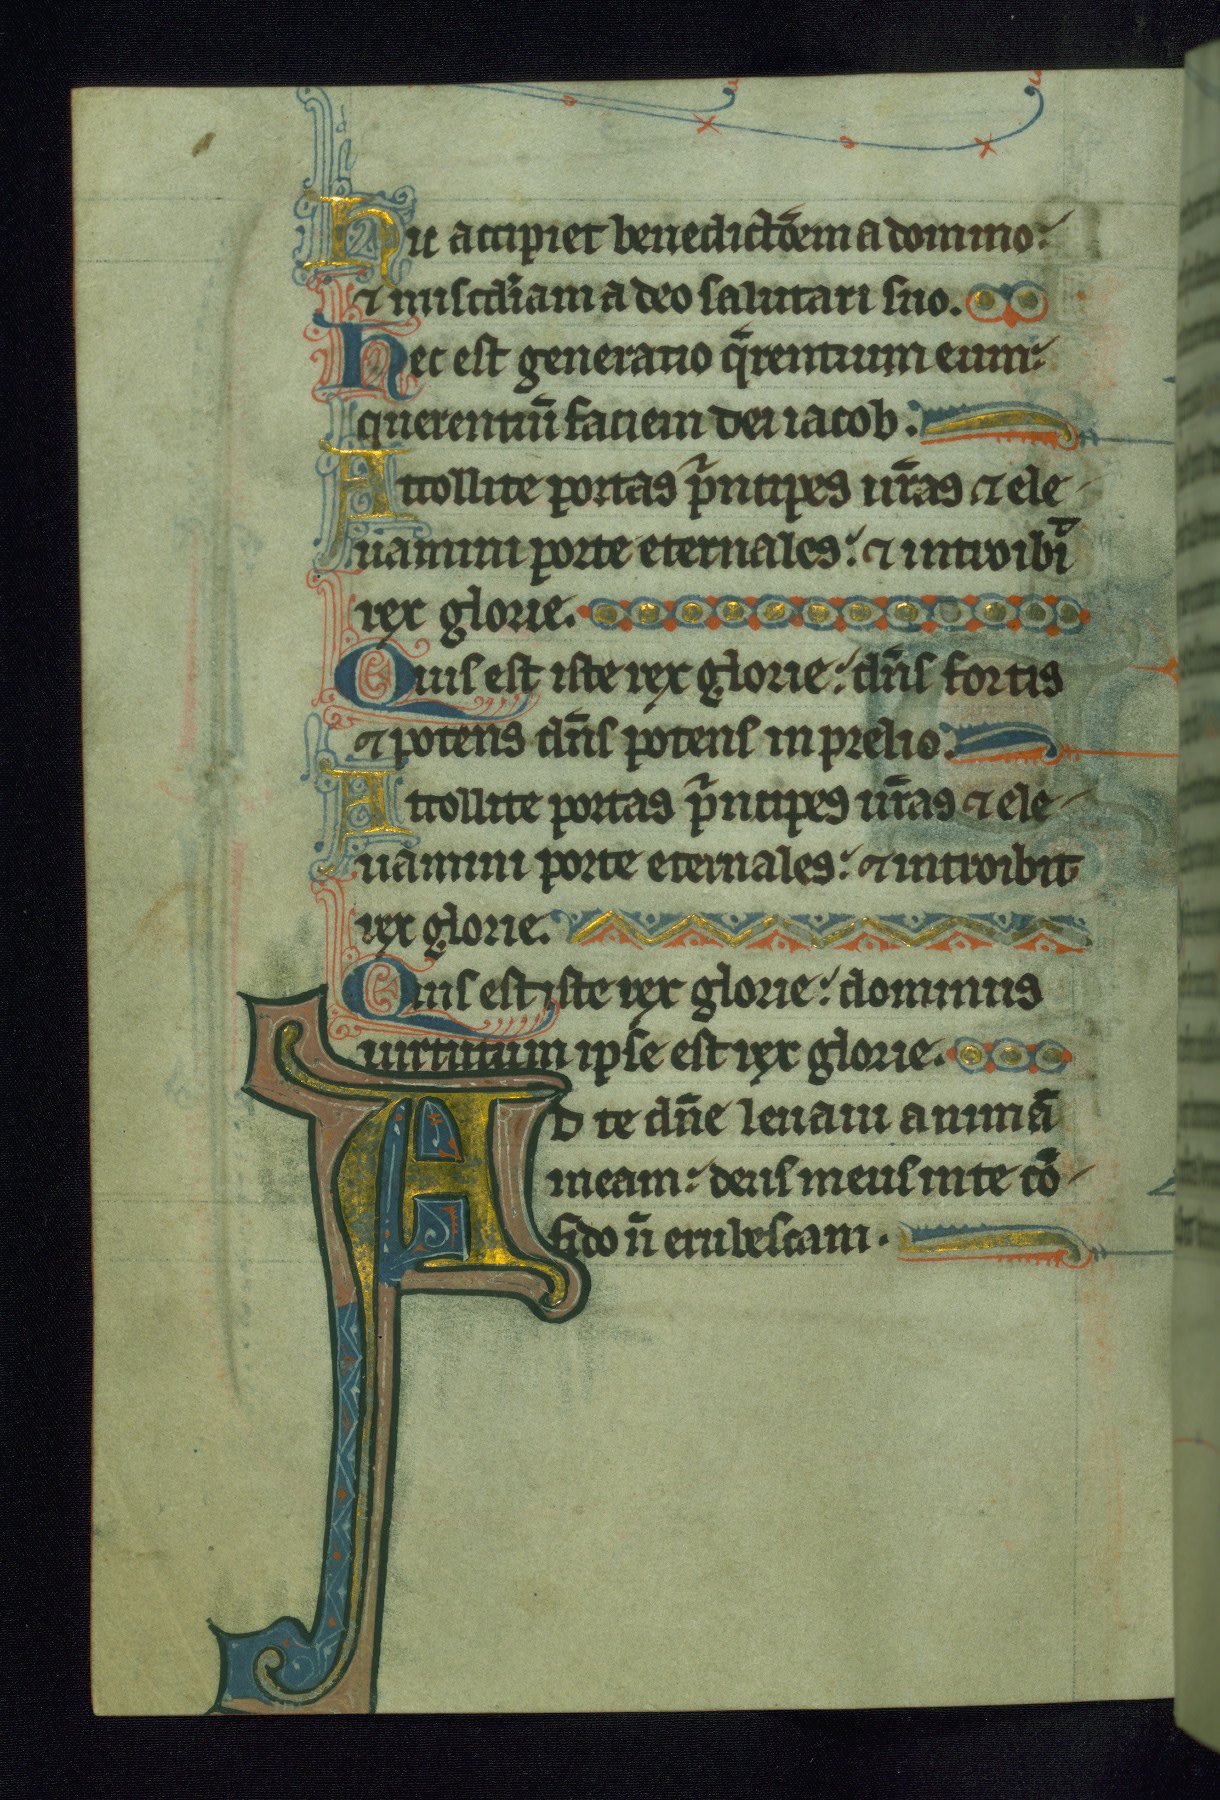 Hic accipiet benedictōem a domino:
⁊ misc̄diam a deo salutari suo.
Hec est generatio q̄rentium eum:
querentiū faciem dei iacob.
Attollite portas p̄ncipes ur̄as ⁊ ele
uamini porte eternales: ⁊ introibit
rex glorie.
Quis est iste rex glorie: dn̄s fortis
⁊ potens dn̄s potens in prelio.
Attollite portas p̄ncipes ur̄as ⁊ ele
uamini porte eternales: ⁊ introibit
rex glorie.
Quis est iste rex glorie: dominus
uirtutum ipse est rex glorie.
Ad te dn̄e leuaui animā
meam: deus meus in te cō
fido n̄ erubescam.